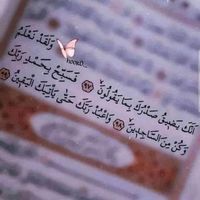 وَلَقَدْ نَعْلَمُ
أَنَّكَ يَضِيقُ صَدْرُكَ بِمَا يَقُولُونَ ٩٧ فَسَبِّحْ بِحَمْدِ رَبِّكَ
وَكُن مِّنَ السَّاجِدِينَ ٩٨ وَاعْبُدْ رَبَّكَ حَتَّىٰ يَأْتِيَكَ الْيَقِينُ ٩٩